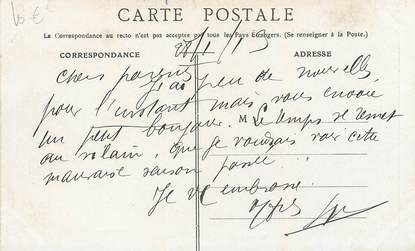 10 €
CARTE POSTALE
La Correspondance au recto n'est pas acceptée par tous les Pays Etrangers. (Se renseigner à la Poste.)
CORRESPONDANCE
ADRESSE
Chers parents
J'ai peu de nouvelles
pour l'instant mais vous envoie
un petit bonjour. M Le temps se remet
au vilain, que je voudrais voir cette
mauvaise saison passée
Je vs embrasse